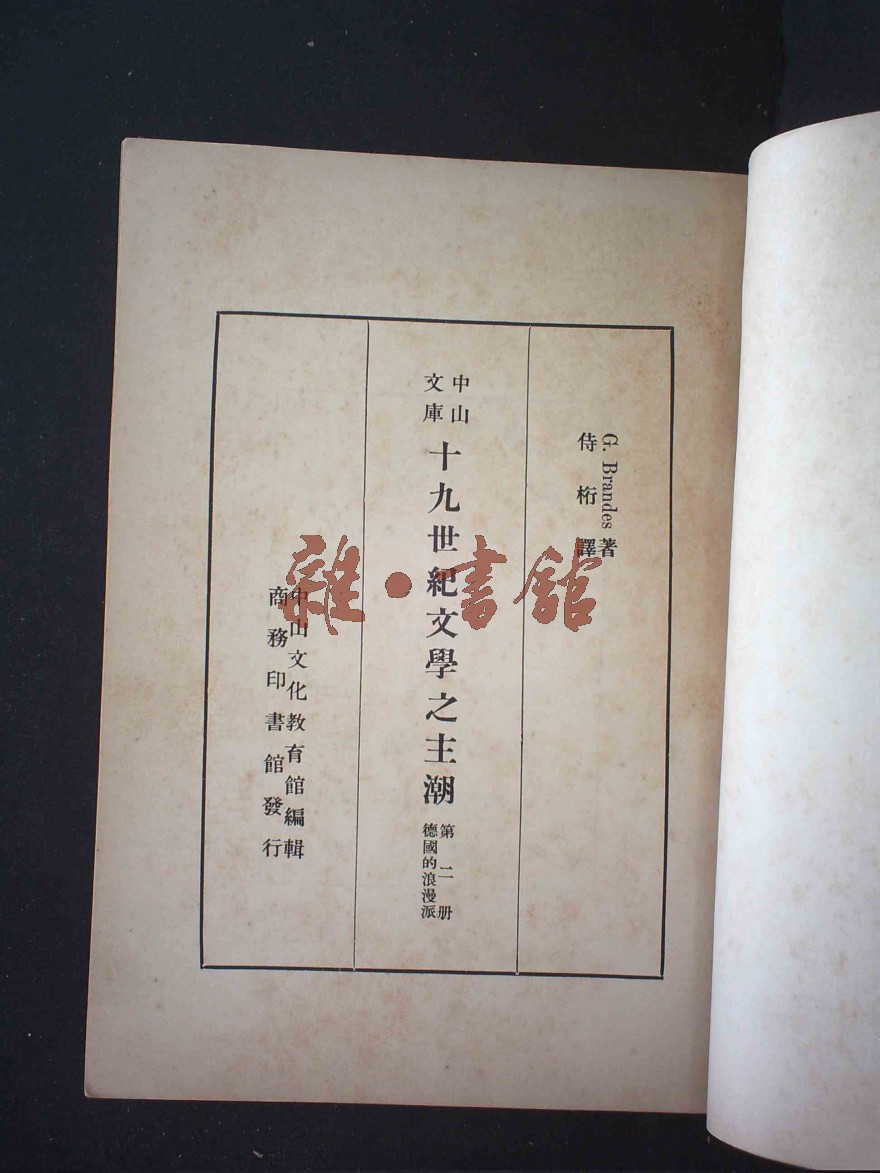 G. Brandes 著
侍桁譯
中山
文庫
十九世紀文學之主潮
第二册
德國的浪漫派
中山文化教育館編輯
商務印書館發行
雜·書館